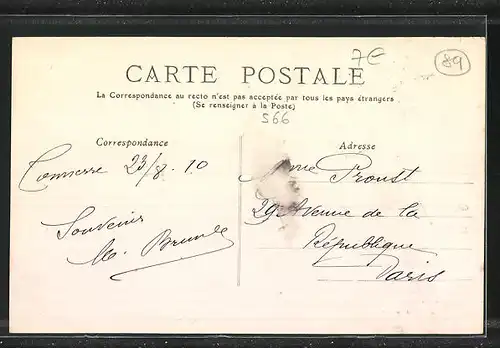 7€
89
CARTE POSTALE
La Correspondance au recto n'est pas acceptée par tous les pays étrangers
(Se renseigner à la Poste)
566
Correspondance
23/8.10
Souvenir
Adresse
Proust
29 Avenue de la
République
Paris